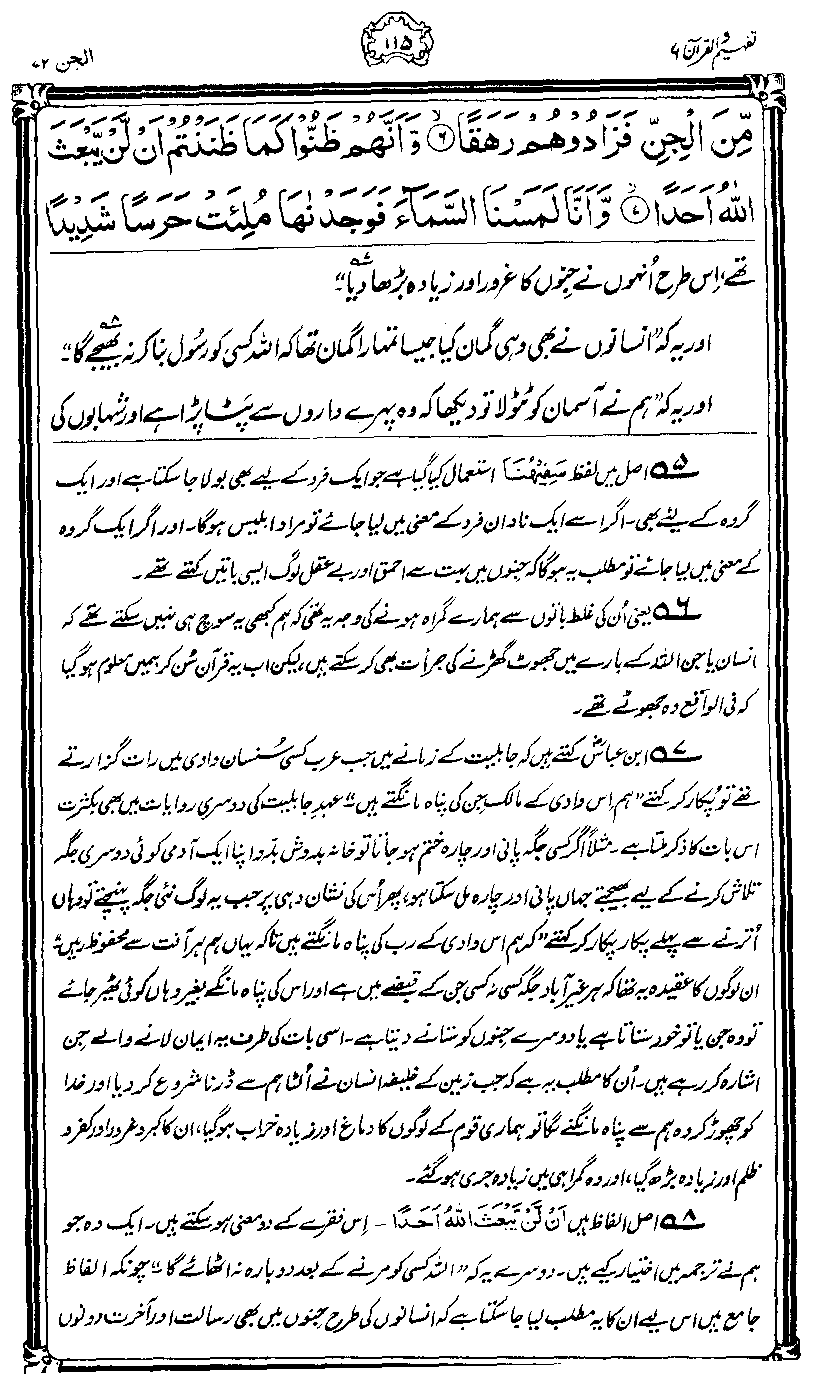 تفہیم القرآن ۶
۱۱۵
الجن ۷۲
مِّنَ الْجِنِّ فَزَادُوْهُمْ رَهَقًا ۶ وَّاَنَّهُمْ ظَنُّوْا كَمَا ظَنَنْتُمْ اَنْ لَّنْ يَّبْعَثَ
اللّٰهُ اَحَدًا ۷ وَّاَنَّا لَمَسْنَا السَّمَآءَ فَوَجَدْنٰهَا مُلِئَتْ حَرَسًا شَدِيْدًا
تھے، اِس طرح اُنہوں نے جِنوں کا غرور اور زیادہ بڑھا دیا۷"۔
اور یہ کہ "انسانوں نے بھی وہی گمان کیا جیسا تمہارا گمان تھا کہ اللہ کسی کو رسُول بنا کر نہ بھیجے گا۸"۔
اور یہ کہ "ہم نے آسمان کو ٹٹولا تو دیکھا کہ وہ پہرے داروں سے پَٹا پڑا ہے اور شہابوں کی
۵ اصل میں لفظ سَفِیْهُنَا استعمال کیا گیا ہے جو ایک فرد کے لیے بھی بولا جا سکتا ہے اور ایک
گروہ کے لیئے بھی۔ اگر اسے ایک نادان فرد کے معنی میں لیا جائے تو مراد ابلیس ہوگا۔ اور اگر ایک گروہ
کے معنی میں لیا جائے تو مطلب یہ ہوگا کہ جنوں میں بہت سے احمق اور بے عقل لوگ ایسی باتیں کہتے تھے۔
۶ یعنی اُن کی غلط باتوں سے ہمارے گمراہ ہونے کی وجہ یہ تھی کہ ہم کبھی یہ سوچ ہی نہیں سکتے تھے کہ
انسان یا جن اللہ کے بارے میں جھوٹ گھڑنے کی جرأت بھی کر سکتے ہیں، لیکن اب یہ قرآن سُن کر ہمیں معلوم ہو گیا
کہ فی الواقع وہ جھوٹے تھے۔
۷ ابن عباسؓ کہتے ہیں کہ جاہلیت کے زمانے میں جب عرب کسی سُنسان وادی میں رات گزارتے
تھے تو پُکار کر کہتے "ہم اس وادی کے مالک جِن کی پناہ مانگتے ہیں"۔ عہدِ جاہلیت کی دوسری روایات میں بھی بکثرت
اس بات کا ذکر ملتا ہے۔ مثلاً اگر کسی جگہ پانی اور چارہ ختم ہو جاتا تو خانہ بدوش بدّو اپنا ایک آدمی کوئی دوسری جگہ
تلاش کرنے کے لیے بھیجتے جہاں پانی اور چارہ مل سکتا ہو، پھر اُس کی نشان دہی پر جب یہ لوگ نئی جگہ پہنچتے تو وہاں
اُترنے سے پہلے پکار پکار کر کہتے "کہ ہم اس وادی کے رب کی پناہ مانگتے ہیں تاکہ یہاں ہم ہر آفت سے محفوظ رہیں"۔
ان لوگوں کا عقیدہ یہ تھا کہ ہر غیر آباد جگہ کسی نہ کسی جن کے قبضے میں ہے اور اس کی پناہ مانگے بغیر وہاں کوئی ٹھیر جائے
تو وہ جن یا تو خود ستاتا ہے یا دوسرے جنوں کو ستانے دیتا ہے۔ اسی بات کی طرف یہ ایمان لانے والے جن
اشارہ کر رہے ہیں۔ اُن کا مطلب یہ ہے کہ جب زمین کے خلیفہ انسان نے اُلٹا ہم سے ڈرنا شروع کر دیا اور خدا
کو چھوڑ کر وہ ہم سے پناہ مانگنے لگا تو ہماری قوم کے لوگوں کا دماغ اور زیادہ خراب ہو گیا، ان کا کبر و غرور اور کفر و
ظلم اور زیادہ بڑھ گیا، اور وہ گمراہی میں زیادہ جری ہو گئے۔
۸ اصل الفاظ ہیں اَنْ لَّنْ یَّبْعَثَ اللّٰهُ اَحَدًا۔ اِس فقرے کے دو معنی ہو سکتے ہیں۔ ایک وہ جو
ہم نے ترجمہ میں اختیار کیے ہیں۔ دوسرے یہ کہ "اللہ کسی کو مرنے کے بعد دوبارہ نہ اٹھائے گا"۔ چونکہ الفاظ
جامع ہیں اس لیے ان کا یہ مطلب لیا جا سکتا ہے کہ انسانوں کی طرح جنوں میں بھی رسالت اور آخرت دونوں